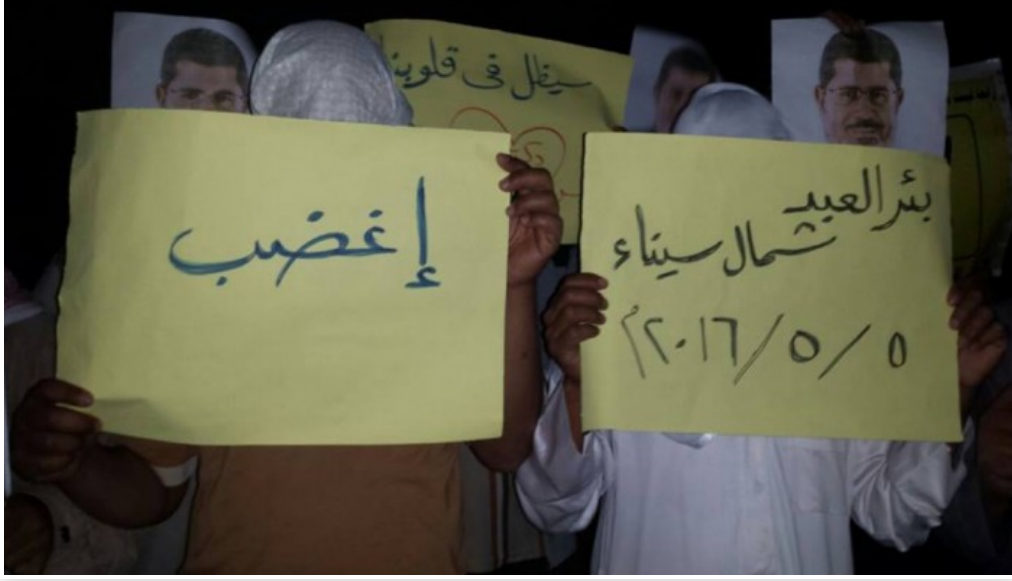 سيظل في قلوبنا
إغضب
بئر العبد
شمال سيناء
٥/٥/٢٠١٦م